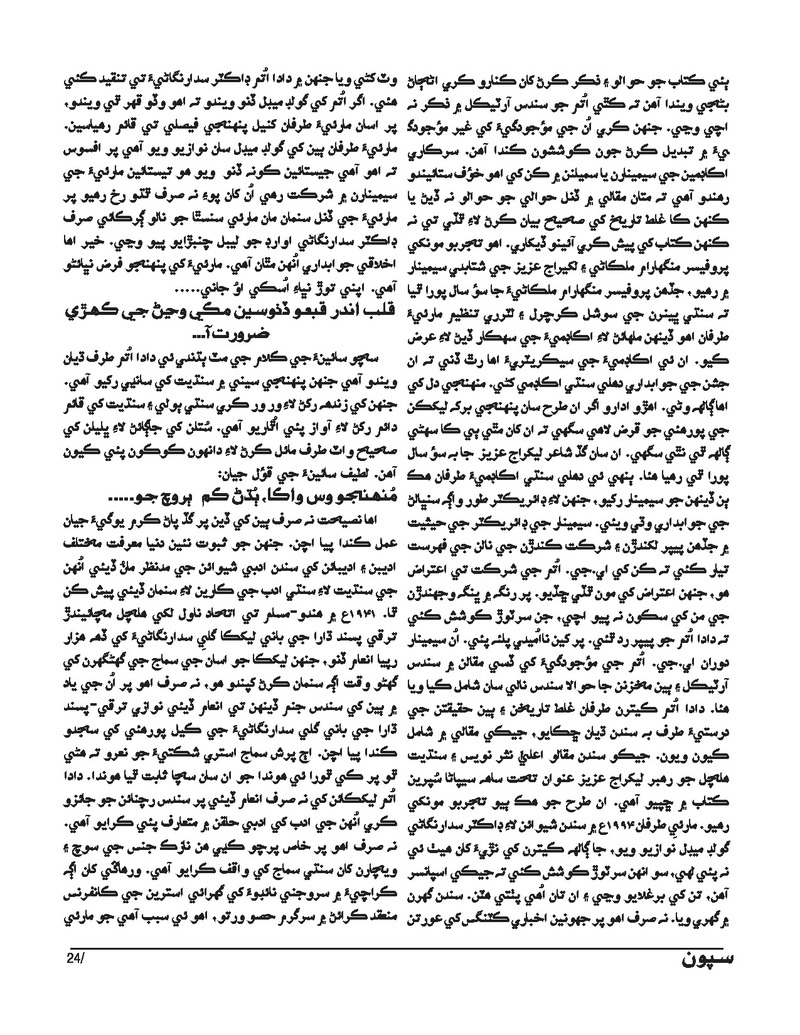 ٻئي ڪتاب جو حوالو ۽ ذڪر ڪرڻ کان ڪنارو ڪري اڻڄاڻ
بڻجي ويندا آهن ته ڪٿي اُتم جو سندس آرٽيڪل ۾ ذڪر نه
اچي وڃي. جنهن ڪري اُن جي مؤجودگيءَ کي غير مؤجودگ
يءَ ۾ تبديل ڪرڻ جون ڪوششون ڪندا آهن. سرڪاري
اڪاڊمين جي سيمينارن يا سميلنن ۾ ڪن کي اهو خؤف ستائيندو
رهندو آهي ته متان مقالي ۾ ڏنل حوالي جو حوالو نه ڏيڻ يا
ڪنهن ڪا غلط تاريخ کي صحيح بيان ڪرڻ لاءِ ڦٽي تي نه
ڪنهن ڪتاب کي پيش ڪري آئينو ڏيکاري. اهو تجربو مونکي
پروفيسر منگهارام ملڪاڻي ۽ ليکراج عزيز جي شتابدي سيمينار
۾ رهيو، جڏهن پروفيسر منگهارام ملڪاڻيءَ جا سؤ سال پورا ٿيا
ته سنٿي ڀينرن جي سوشل ڪرچرل ۽ لٽرري تنظيم مارئيءَ
طرفان اهو ڏينهن ملهائڻ لاءِ اڪاڊميءَ جي سهڪار ڏيڻ لاءِ عرض
ڪيو. ان ئي اڪاڊميءَ جي سيڪريٽريءَ اها رٿ ڏني ته ان
جشن جي جوابداري دهلي سنڌي اڪاڊمي کڻي. منهنجي دل کي
اها ڳالهه وڻي. اهڙو ادارو اگر ان طرح سان پنهنجي برک ليکڪن
جي پورهئي جو قرض لاهي سگهي ته ان کان مٿي ٻي ڪا سهڻي
ڳالهه ٿي نٿي سگهي. ان سان گڏ شاعر ليکراج عزيز جا به سؤ سال
پورا ٿي رهيا هئا. ٻنهي ئي دهلي سنڌي اڪاڊميءَ طرفان هڪ
ٻن ڏينهن جو سيمينار رکيو، جنهن لاءِ ڊائريڪٽر طور واڳ سنڀالڻ
جي جوابداري وٽي ويئي. سيمينار جي ڊائريڪٽر جي حيثيت
۾ جڏهن پيپر لکندڙن ۽ شرڪت ڪندڙن جي نالن جي فهرست
تيار ڪئي ته ڪن کي اي.جي. اُتم جي شرڪت تي اعتراض
هو، جنهن اعتراض کي مون ڦٽي ڇڏيو. پر رنگ ۾ ڀنگ وجهندڙن
جي من کي سڪون نه پيو اچي، جن سرتوڙ ڪوشش ڪئي
ته دادا اُتم جو پيپر رد ٿئي. پر کين نااُميدي پلئه پئي. اُن سيمينار
دوران اي.جي. اُتم جي مؤجودگيءَ کي ڏسي مقالن ۾ سندس
آرٽيڪل ۽ ٻين مخزنن جا حوالا سندس نالي سان شامل ڪيا ويا
هئا. دادا اُتم ڪيترن طرفان غلط تاريخن ۽ ٻين حقيقتن جي
درستيءَ طرف به سندن ڌيان ڇڪايو، جيڪي مقالي ۾ شامل
ڪيون ويون. جيڪو سندن مقالو اعليٰ نثر نويس ۽ سنڌيت
هلچل جو رهبر ليکراج عزيز عنوان تحت ساهه سيپاٽا سُپرين
ڪتاب ۾ ڇپيو آهي. ان طرح جو هڪ ٻيو تجربو مونکي
رهيو. مارئيِ طرفان ۱۹۹۴ع ۾ سندن شيوائن لاءِ ڊاڪٽر سدارنگاڻي
گولڊ ميڊل نوازيو ويو، جا ڳالهه ڪيترن کي نڙيءَ کان هيٺ ئي
نه پئي لهي، سو انهن سرٽوڙ ڪوشش ڪئي ته جيڪي اسپانسر
آهن، تن کي برغلايو وڃي ۽ ان تان اُهي پٽتي هٽن. سندن گهرن
۾ گهري ويا. نه صرف اهو پر جهونين اخباري ڪٽنگس کي عورتن
وٽ کڻي ويا جنهن ۾ دادا اُتم ڊاڪٽر سدارنگاڻيءَ تي تنقيد ڪئي
هئي. اگر اُتم کي گولڊ ميڊل ڏنو ويندو ته اهو وڏو قهر ٿي ويندو،
پر اسان مارئيءَ طرفان کنيل پنهنجي فيصلي تي قائم رهياسين.
مارئيءَ طرفان ٻين کي گولڊ ميڊل سان نوازيو ويو آهي پر افسوس
ته اهو آهي جيستائين ڪونه ڏنو ويو هو تيستائين مارئيءَ جي
سيمينارن ۾ شرڪت رهي اُن کان پوءِ نه صرف ڦٽو رخ رهيو پر
مارئيءَ جي ڏنل سنمان مان مارئي سنسٿا جو نالو ڳرڪائي صرف
ڊاڪٽر سدارنگاڻي اوارڊ جو ليبل چنبڙايو پيو وڃي. خير اها
اخلاقي جوابداري اُنهن مٿان آهي. مارئيءَ کي پنهنجو فرض نڀائڻو
آهي. اپني توڙ نڀاءِ اُسڪي اوُ جاني.....
قلب اندر قبعو ڏٺوسين مڪي وڃڻ جي ڪهڙي
ضرورت آ...
سچو سائينءَ جي ڪلام جي مٽ پڌندي ئي دادا اُتم طرف ڌيان
ويندو آهي جنهن پنهنجي سيني ۾ سنڌيت کي سانڀي رکيو آهي.
جنهن کي زندهه رکڻ لاءِ ور ور ڪري سنڌي ٻولي ۽ سنڌيت کي قائم
دائم رکڻ لاءِ آواز پئي اُٿاريو آهي. سُتلن کي جاڳائڻ لاءِ ڀليلن کي
صحيح واٽ طرف مائل ڪرڻ لاءِ دانهون ڪوڪون پئي ڪيون
آهن. لطيف سائينءَ جي قؤل جيان:
مُنهنجو وس واڪا، ٻُڌڻ ڪم ٻروچ جو.....
اها نصيحت نه صرف ٻين کي ڏين پر گڏ پاڻ ڪرم يوگيءَ جيان
عمل ڪندا پيا اچن. جنهن جو ثبوت نئين دنيا معرفت مختلف
اديبن ۽ اديبائن کي سندن ادبي شيوائن جي مدنظر ملُ ڏيئي اُنهن
جي سنڌيت لاءِ سنڌي ادب جي ڪارين لاءِ سنمان ڏيئي پيش ڪن
ٿا. ۱۹۴۱ع ۾ هندو-مسلم تي اتحاد ناول لکي هلچل مچائيندڙ
ترقي پسند ڌارا جي باني ليکڪا گلي سدارنگاڻيءَ کي ڏهه هزار
رپيا انعام ڏنو، جنهن ليکڪا جو اسان جي سماج جي گهڻگهرن کي
گهڻو وقت اڳ سنمان ڪرڻ کپندو هو، نه صرف اهو پر اُن جي ياد
۾ ٻين کي سندس جنم ڏينهن تي انعام ڏيئي نوازي ترقي-پسند
ڌارا جي باني گلي سدارنگاڻيءَ جي ڪيل پورهئي کي سجدو
ڪندا پيا اچن. اڄ پرش سماج استري شڪتيءَ جو نعرو ته هڻي
ٿو پر ڪي ٿورا ئي هوندا جو ان سان سچا ثابت ٿيا هوندا. دادا
اُتم ليکڪائن کي نه صرف انعام ڏيئي پر سندس رچنائن جو جائزو
ڪري اُنهن جي ادب کي ادبي حلقن ۾ متعارف پئي ڪرايو آهي.
نه صرف اهو پر خاص پرچو ڪڍي هن نازڪ جنس جي سوچ ۽
ويچارن کان سنڌي سماج کي واقف ڪرايو آهي. ورهاڱي کان اڳ
ڪراچيءَ ۾ سروجني نائيوءَ کي گهرائي استرين جي ڪانفرنس
منعقد ڪرائڻ ۾ سرگرم حصو ورتو، اهو ئي سبب آهي جو مارئي
24/
سپون